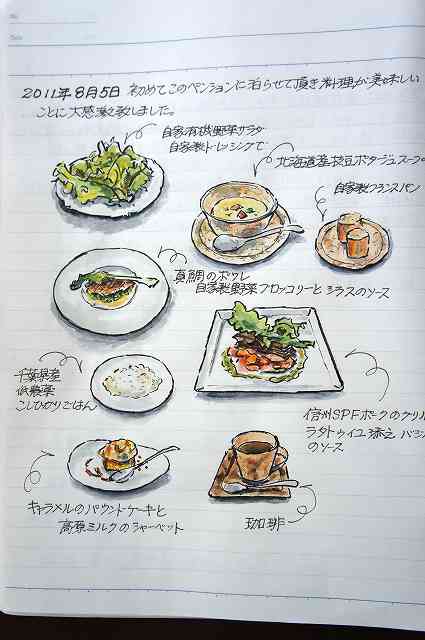 2011年8月5日 初めてこのペンションに泊らせて頂き料理が美味しい
ことに大感激致しました。
自家有機野菜サラダ
自家製ドレッシングで
北海道産枝豆ポタージュスープ
自家製フランスパン
真鯛のポワレ
自家製野菜ブロッコリーとシラスのソース
千葉県産
低農薬
こしひかりごはん
信州SPFポークのグリル
ラタトゥイユ添え バ
のソース
キャラメルのパウンドケーキと
高原ミルクのシャーベット
珈琲